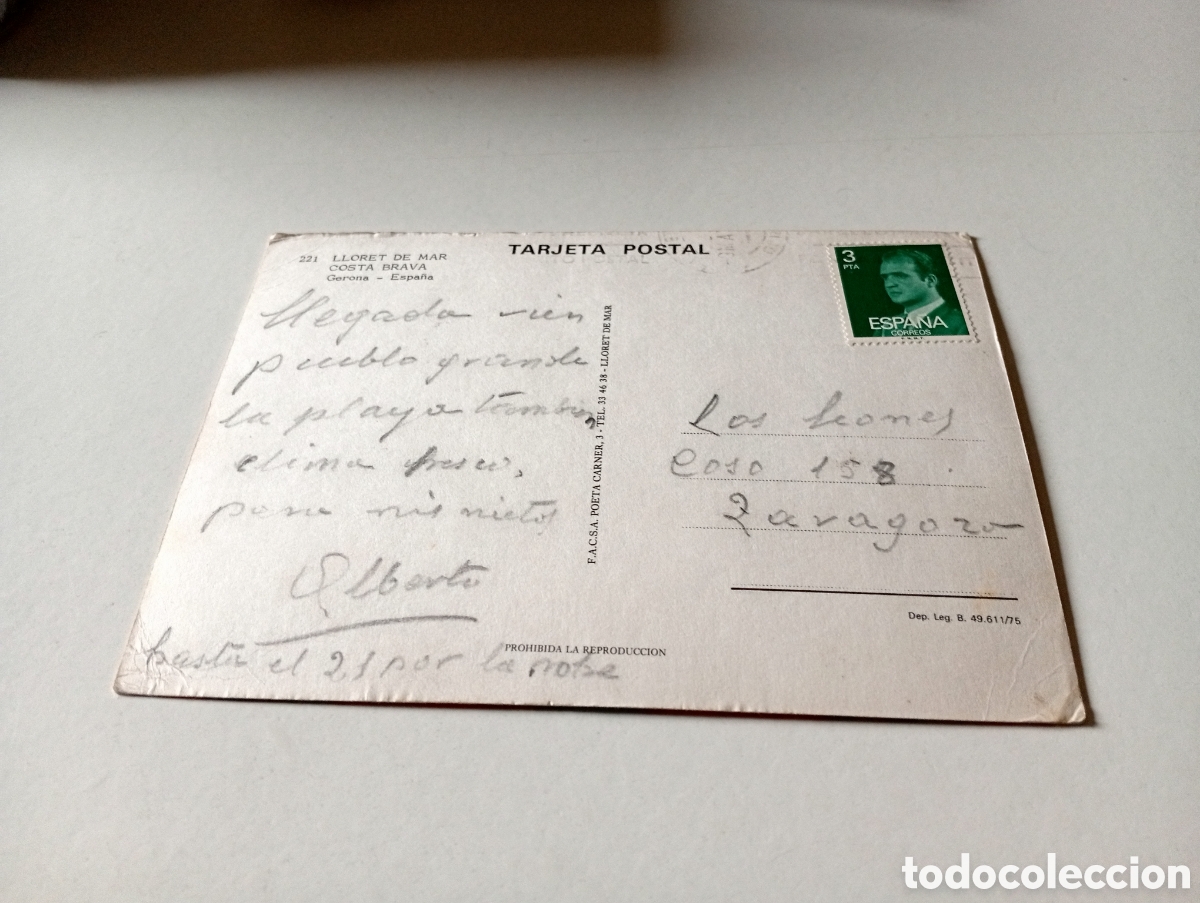 221 LLORET DE MAR
COSTA BRAVA
Gerona - España
TARJETA POSTAL
3
PTA
ESPAÑA
CORREOS
F.N.M.T.
llegada vien
pueblo grande
la playa tambien,
clima fresco,
para mis nietos
Alberto
hasta el 21 por la
F.A.C.S.A. POETA CARNER, 3 - TEL. 33 46 38 - LLORET DE MAR
Los leones
Coso 158
Zaragoza
Dep. Leg. B. 49.611/75
PROHIBIDA LA REPRODUCCION
todocoleccion